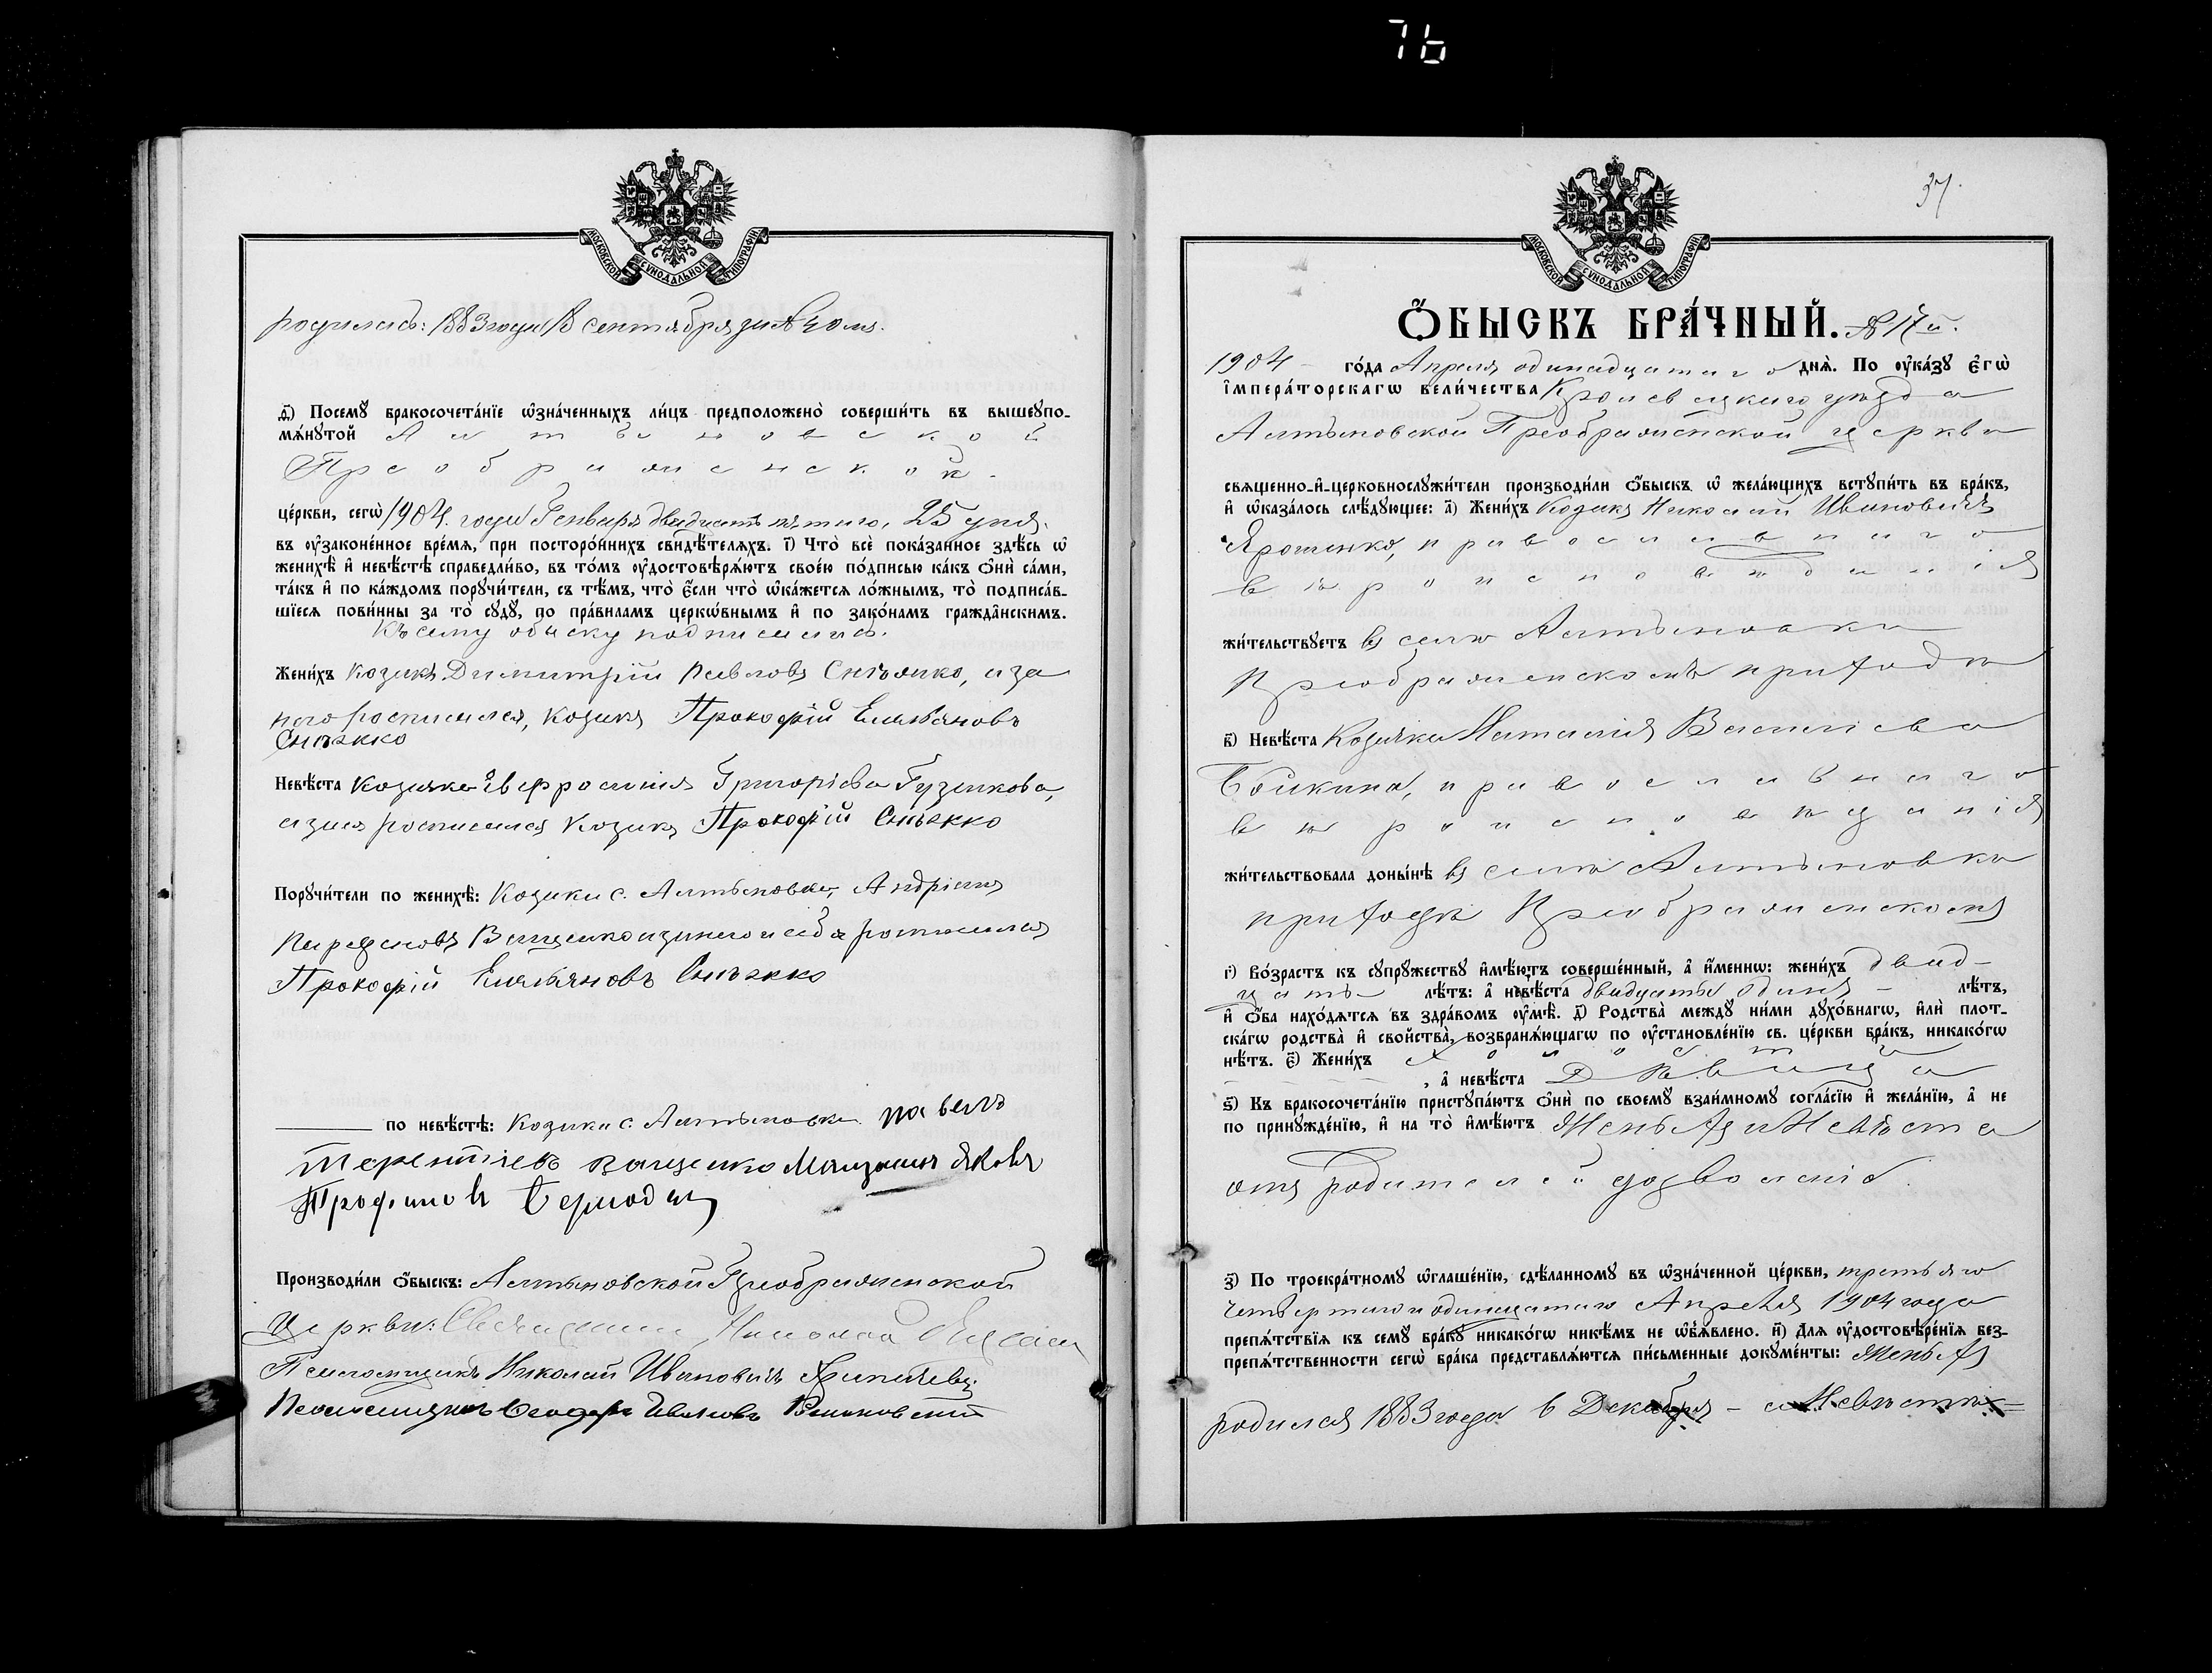 76
МОСКОВСКОЙ СѴНОДАЛЬНОЙ ТИПОГРАФІИ
родилась: 1883 года 18 сентября за № 40мъ.
д҃і) Посемꙋ̀ бракосочета́нїе ѡ҆зна́ченныхъ ли́цъ предположено̀ соверши́ть въ вышеꙋпо-
мѧ́нꙋтой Алтыновской
Преображенской.
це́ркви, сегѡ̀ 1904. года Генваря двадцать пятаго, 25 дня.
въ ᲂу҆законе́нное вре́мѧ, при посторо́ннихъ свидѣ́телѧхъ. і҃) Что̀ всѐ пока́занное здѣ́сь ѡ҆
женихѣ̀ и҆ невѣ́стѣ справедли́во, въ то́мъ ᲂу҆достовѣрѧ́ютъ свое́ю по́дписью ка́къ ѻ҆нѝ са́ми,
та́къ и҆ по ка́ждомъ порꙋчи́тели, съ тѣ́мъ, что̀ є҆́сли что̀ ѡ҆ка́жетсѧ ло́жнымъ, то̀ подписа́в-
шїесѧ пови́нны за то̀ сꙋдꙋ̀, по пра́виламъ церкѡ́внымъ и҆ по зако́намъ гражда̂нскимъ.
Къ сему обыску подписались.
Жени́хъ козакъ Димитрій Павловъ Снѣжко, а за
него росписался, козакъ Прокофій Емельяновъ
Снѣжко
Невѣ́ста козачка Евфросинія Григоріева Гузикова,
а за нея росписался козакъ Прокофій Снѣжко
Порꙋчи́тели по женихѣ̀: Козаки с. Алтыновки, Андріанъ
Парфеновъ Ващенко а за него и себя росписался
Прокофій Емельяновъ Снѣжко
по невѣ́стѣ: Козаки с. Алтыновки Павелъ
Терентіевъ Ващенко Яковъ
Трофимовъ
Производи́ли ѻ҆́быскъ: Алтыновской Преображенской
Церкви: Священникъ Николай
Псаломщикъ Николай Ивановичъ
Псаломщикъ Ѳеодоръ Ивановъ
37.
МОСКОВСКОЙ СѴНОДАЛЬНОЙ ТИПОГРАФІИ
Ѻ҆́БЫСКЪ БРА́ЧНЫЙ. № 17й.
1904 го́да Апреля одинадцатаго днѧ̀. По ᲂу҆ка́зꙋ є҆гѡ̀
і҆мпера́торскагѡ вели́чества Кролевецкаго уезда
Алтыновской Преображенской церкви
свѧще́нно-и҆-церковнослꙋжи́тели производи́ли ѻ҆́быскъ ѡ҆ жела́ющихъ встꙋпи́ть въ бра́къ,
и҆ ѡ҆каза́лось слѣ́дꙋющее: а҃) Жени́хъ Козакъ Николай Ивановичъ
Ярошенко, православнаго
вѣроисповѣданія
жи́тельствꙋетъ въ селѣ Алтыновки
Преображенскомъ приходѣ
в҃) Невѣ́ста Козачка Наталія Василіева
Бойкина, православнаго
вѣроисповѣданія
жи́тельствовала доны́нѣ въ селѣ Алтыновки
приходѣ Преображенскомъ
г҃) Во́зрастъ къ сꙋпрꙋ́жествꙋ и҆мѣ́ютъ соверше́нный, а҆ и҆́менно: жени́хъ двад-
цать лѣ́тъ: а҆ невѣ́ста двадцать одинъ лѣ́тъ,
и҆ ѻ҆́ба нахо́дѧтсѧ въ здра́вомъ ᲂу҆мѣ̀. д҃) Родства̀ междꙋ̀ ни́ми дꙋхо́внагѡ, и҆лѝ плот-
ска́гѡ родства̀ и҆ свойства̀, возбранѧ́ющагѡ по ᲂу҆становле́нїю св. це́ркви бра́къ, никако́гѡ
нѣ́тъ. є҃) Жени́хъ холостъ
, а҆ невѣ́ста Дѣвица
ѕ҃) Къ бракосочета́нїю пристꙋпа́ютъ ѻ҆нѝ по своемꙋ̀ взаи́мномꙋ согла́сїю и҆ жела́нїю, а҆ не
по принꙋжде́нїю, и҆ на то̀ и҆мѣ́ютъ Женихъ и Невѣста
отъ родителей дозволеніе.
з҃) По троекра́тномꙋ ѡ҆глаше́нїю, сдѣ́ланномꙋ въ ѡ҆зна́ченной це́ркви, третьяго
четвертаго и одинадцатаго Апреля 1904 года
препѧ́тствїѧ къ семꙋ̀ бра́кꙋ никако́гѡ никѣ́мъ не ѡ҆б̾ѧ́влено. и҃) Длѧ ᲂу҆достовѣре́нїѧ без-
препѧ́тственности сегѡ̀ бра́ка представлѧ́ютсѧ пи́сьменные докꙋме́нты: Женихъ
родился 1883 года 6 Декабря – а Невѣста